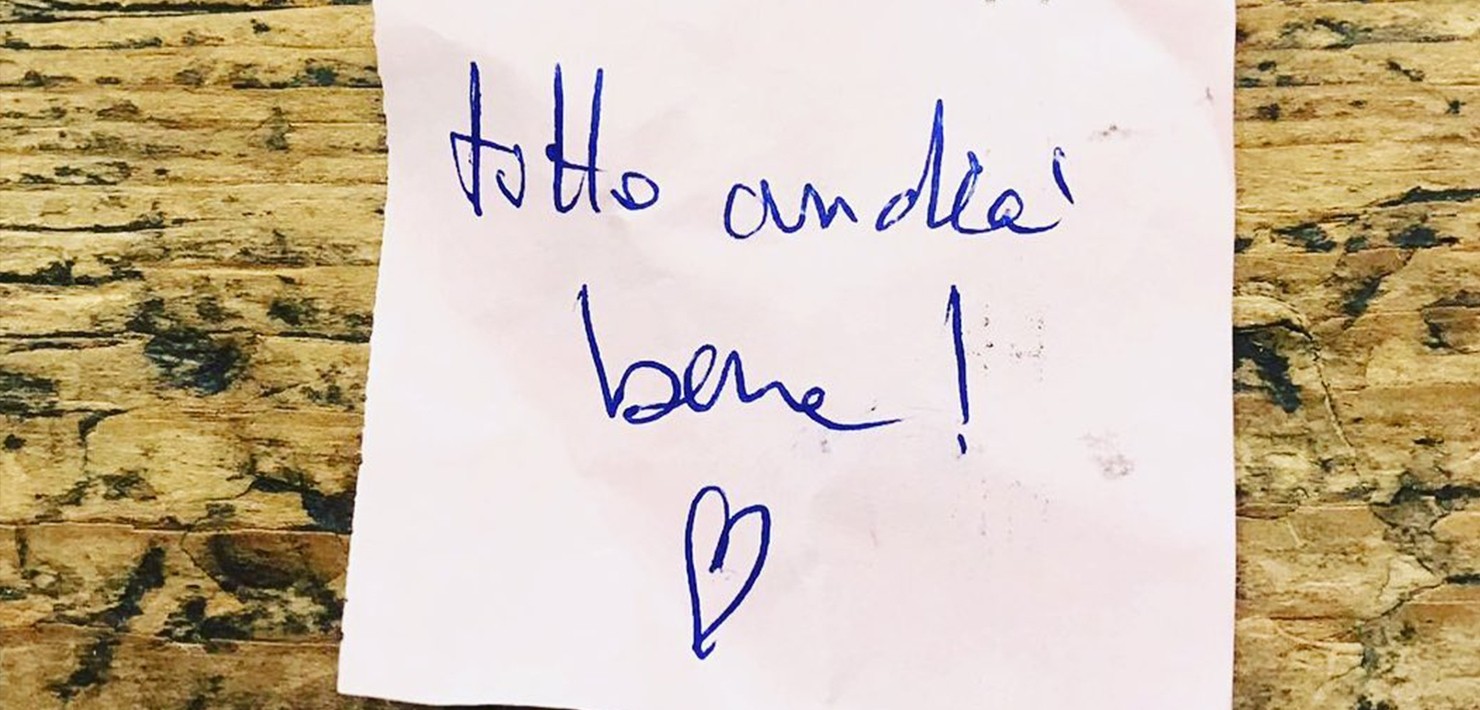 tutto andrà
bene!